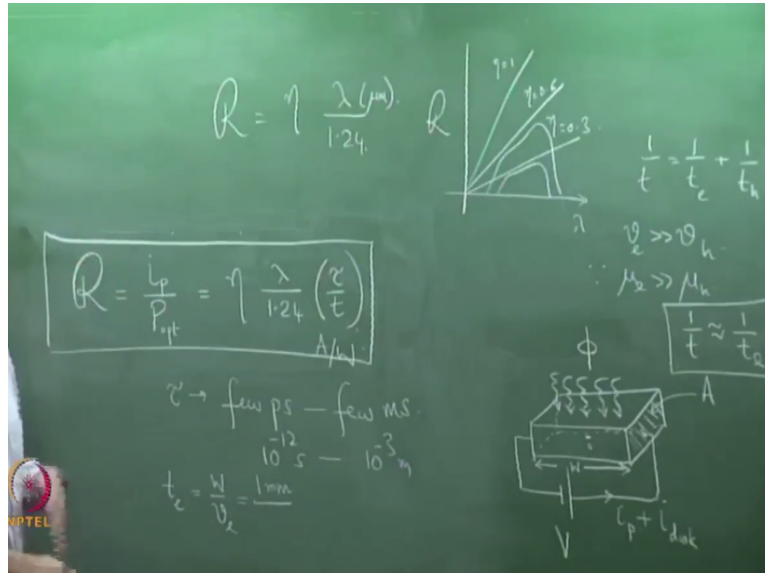 R = η λ(μm) / 1.24
R
η=1
η=0.6
η=0.3
λ
1/t = 1/t_e + 1/t_h
ϑ_e >> ϑ_h.
∵ μ_e >> μ_h
1/t ≈ 1/t_e
R = i_p / P_opt = η λ / 1.24 (τ / t)
A/W
τ → few ps — few ms.
10^-12 s — 10^-3 m
t_e = W / ϑ_e = 1 mm
ϕ
A
i
W
i_p + i_dark
V
NPTEL